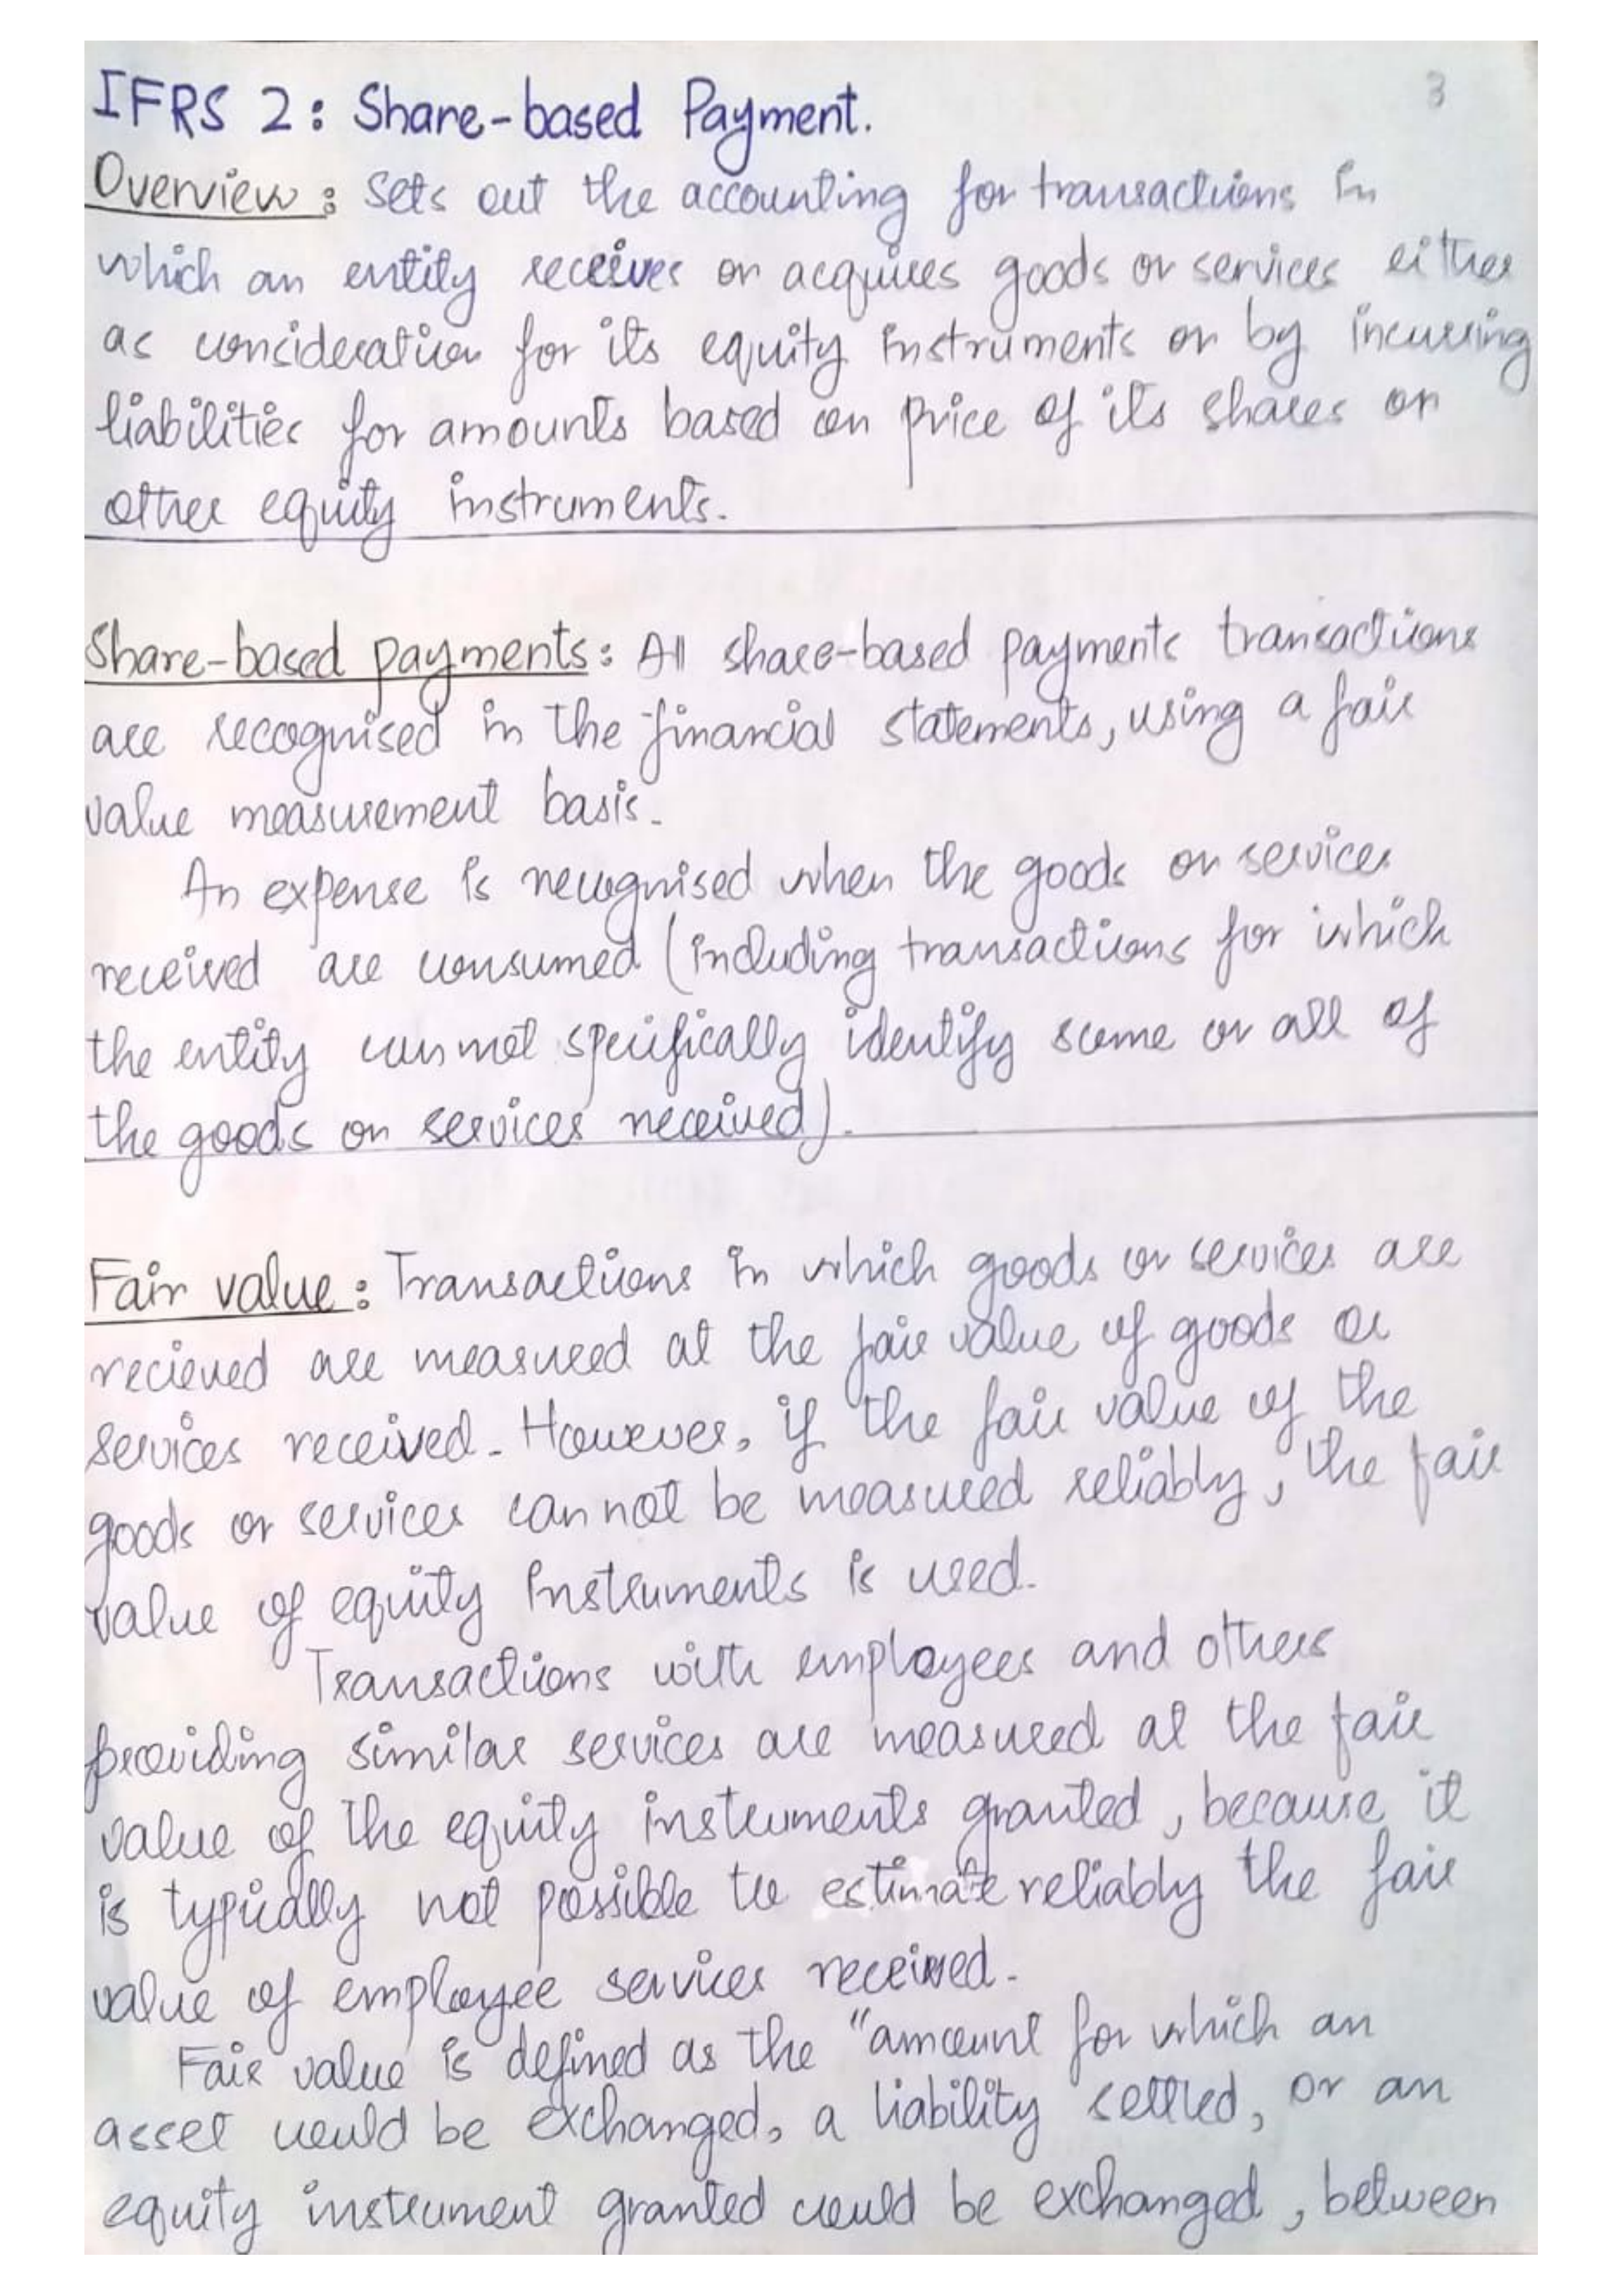 3
IFRS 2: Share-based Payment.
Overview: Sets out the accounting for transactions in
which an entity receives or acquires goods or services either
as consideration for its equity instruments or by incurring
liabilities for amounts based on price of its shares or
other equity instruments.
Share-based payments: All share-based payments transactions
are recognised in the financial statements, using a fair
value measurement basis.
An expense is recognised when the goods or services
received are consumed (including transactions for which
the entity cannot specifically identify some or all of
the goods or services received).
Fair value: Transactions in which goods or services are
recieved are measured at the fair value of goods or
services received. However, if the fair value of the
goods or services can not be measured reliably, the fair
value of equity instruments is used.
Transactions with employees and others
providing similar services are measured at the fair
value of the equity instruments granted, because it
is typically not possible to estimate reliably the fair
value of employee services received.
Fair value is defined as the "amount for which an
asset could be exchanged, a liability settled, or an
equity instrument granted could be exchanged, between